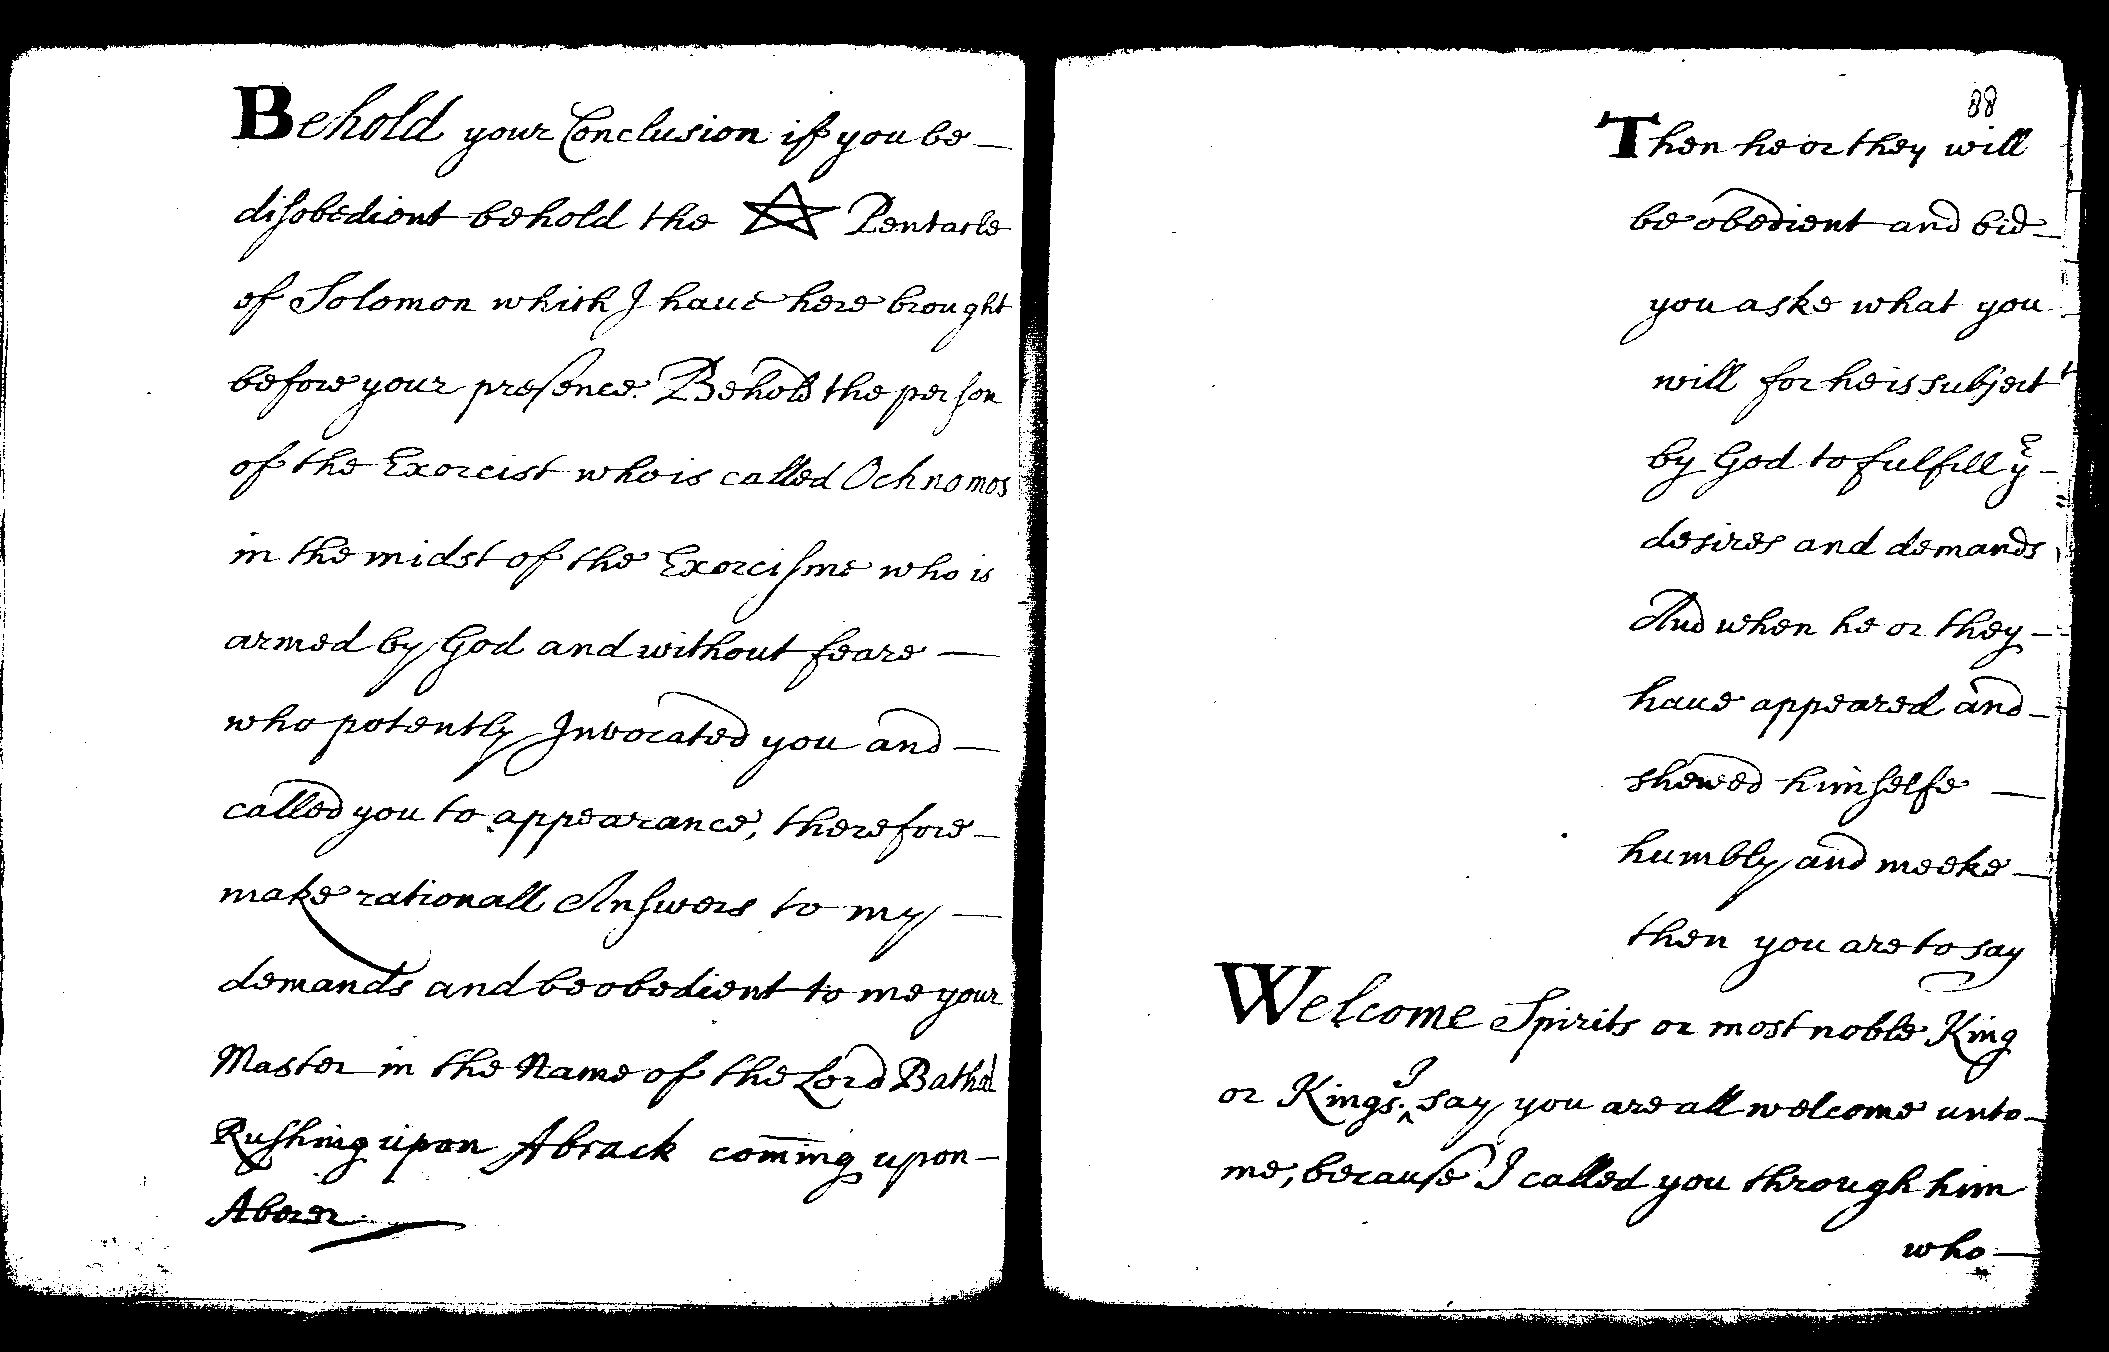 Behold your Conclusion if you be —
disobedient behold the Pentacle
of Solomon which I have here brought
before your presence. Behold the person
of the Exorcist who is called Ochnomos
in the midst of the Exorcisme who is
armed by God and without feare —
who potently Invocated you and —
called you to appearance, therefore —
make rationall Answers to my —
demands and be obedient to me your
Master in the Name of the Lord Bathal
Rushing upon Abrack coming upon —
Aberer
88
Then he or they will
be obedient and bid —
you aske what you
will for he is subject
by God to fulfill yͤ —
desires and demands
And when he or they —
have appeared and —
shewed himselfe —
humbly and meeke —
then you are to say
Welcome Spirits or most noble King
or Kings: I say you are all welcome unto —
me, because I called you through him
who —